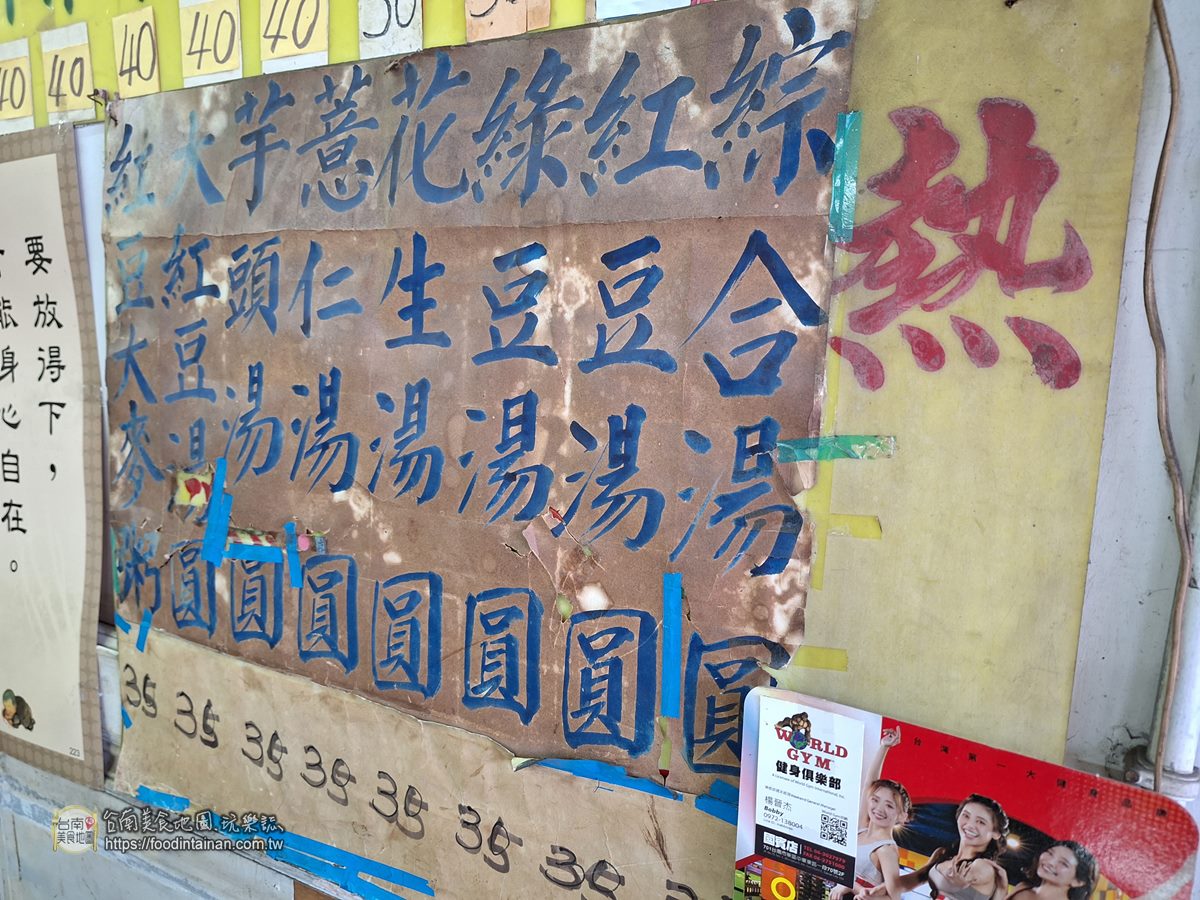 40
40
40
40
40
熱
綜合湯圓
紅豆湯圓
綠豆湯圓
花生湯圓
薏仁湯圓
芋頭湯圓
大紅豆湯圓
紅豆大麥粥
35
35
35
35
35
35
35
要放得下，
能身心自在。
223
WORLD GYM
健身俱樂部
楊晉杰
Bobby
0972-138004
台灣第一大健身品牌
台南美食地圖.玩樂誌
https://foodintainan.com.tw
台南
美食地圖